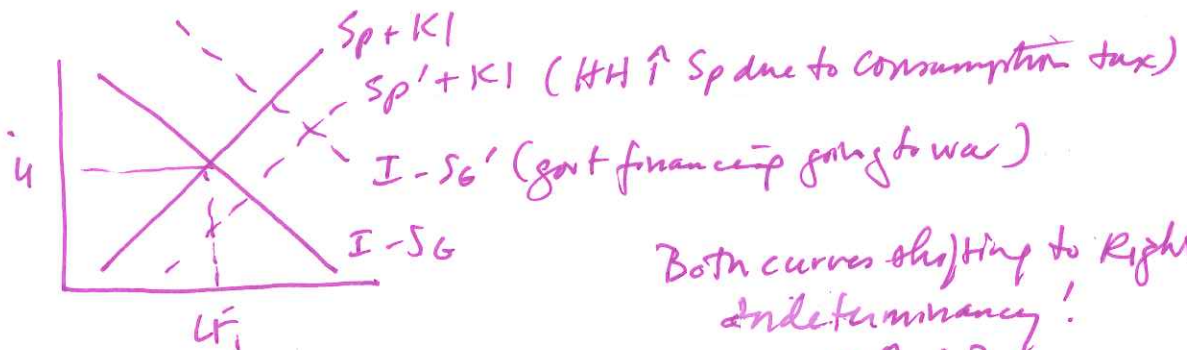 Sp + KI
Sp' + KI (HH ↑ Sp due to consumption tax)
I - SG' (govt financing going to war)
I - SG
Both curves shifting to Righ
indeterminancy!
LF1